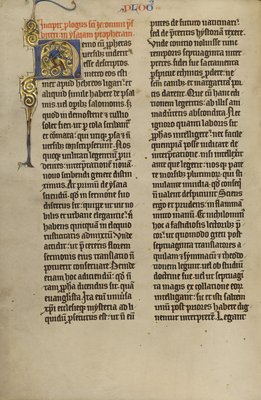 PLOG
Incipit plogus sci ieronimi pr
biteri in ysaiam prophetam
Nemo cum prophetas
versibus viderit
esse descriptos
metro eos esti
met apud hebreos ligari · et
aliquid simile habere de psal
mis · vel opibus salomonis · s
quod in demostene et tullio
solet fieri · ut p cola scribant
et comata · qui utique psa et n
versibus conscripserunt · Nos
quoque utilitati legentium pui
dentes · interpretationē noua
nouo scribendi genere distin
ximus · Ac primum de ysaia
sciendū · qd in sermone suo
disertus sit · quippe ut vir no
bilis et urbane elegantie · n
habens quicquam in eloquio
rusticitatis admixtū · Unde
accidit · ut p ceteris florem
sermonis eius translatio n
potuerit conseruare · Deinde
etiam hoc adiciendū · qd n tam
propha dicendus sit · qua
euangelista · Ita enī uniusa
xpi ecclesieque mysteria ad li
quidum psecutus est · ut n eū
putes de futuro vaticinari ·
sed de pteritis hystoriā texere ·
Unde conicio noluisse tunc
temporis septuaginta inter
pretes · fidei sue sacramenta
perspicue ethnicis pdere · ne
sem canibs · et margaritas por
cis darent · Que cū hanc edi
tionem legeritis · ab illis ani
maduertetis abscondita · Nec
ignoro quanti laboris sit ·
prophas intelligere · nec facile
quempiam posse iudicare de
interpretatione · nisi intellexerit
ante que legerit · nosque pati
et morsibus plurimor · qui sti
mulante inuidia qd consequi
n valent despiciunt · Sciens
ergo et prudens · in flammā
mitto manū · Et nichilomin
hoc a fastidiosis lectoribs p
cor · ut quomodo greci post
septuaginta translatores a
quilam et symmacū et theodo
tionem legunt · vel ob studiū
doctrine sue · vel ut septuagī
ta magis ex collatione eor
intelligant · sic et isti saltem
unum post priores habere dig
nentur interpretē · Legant